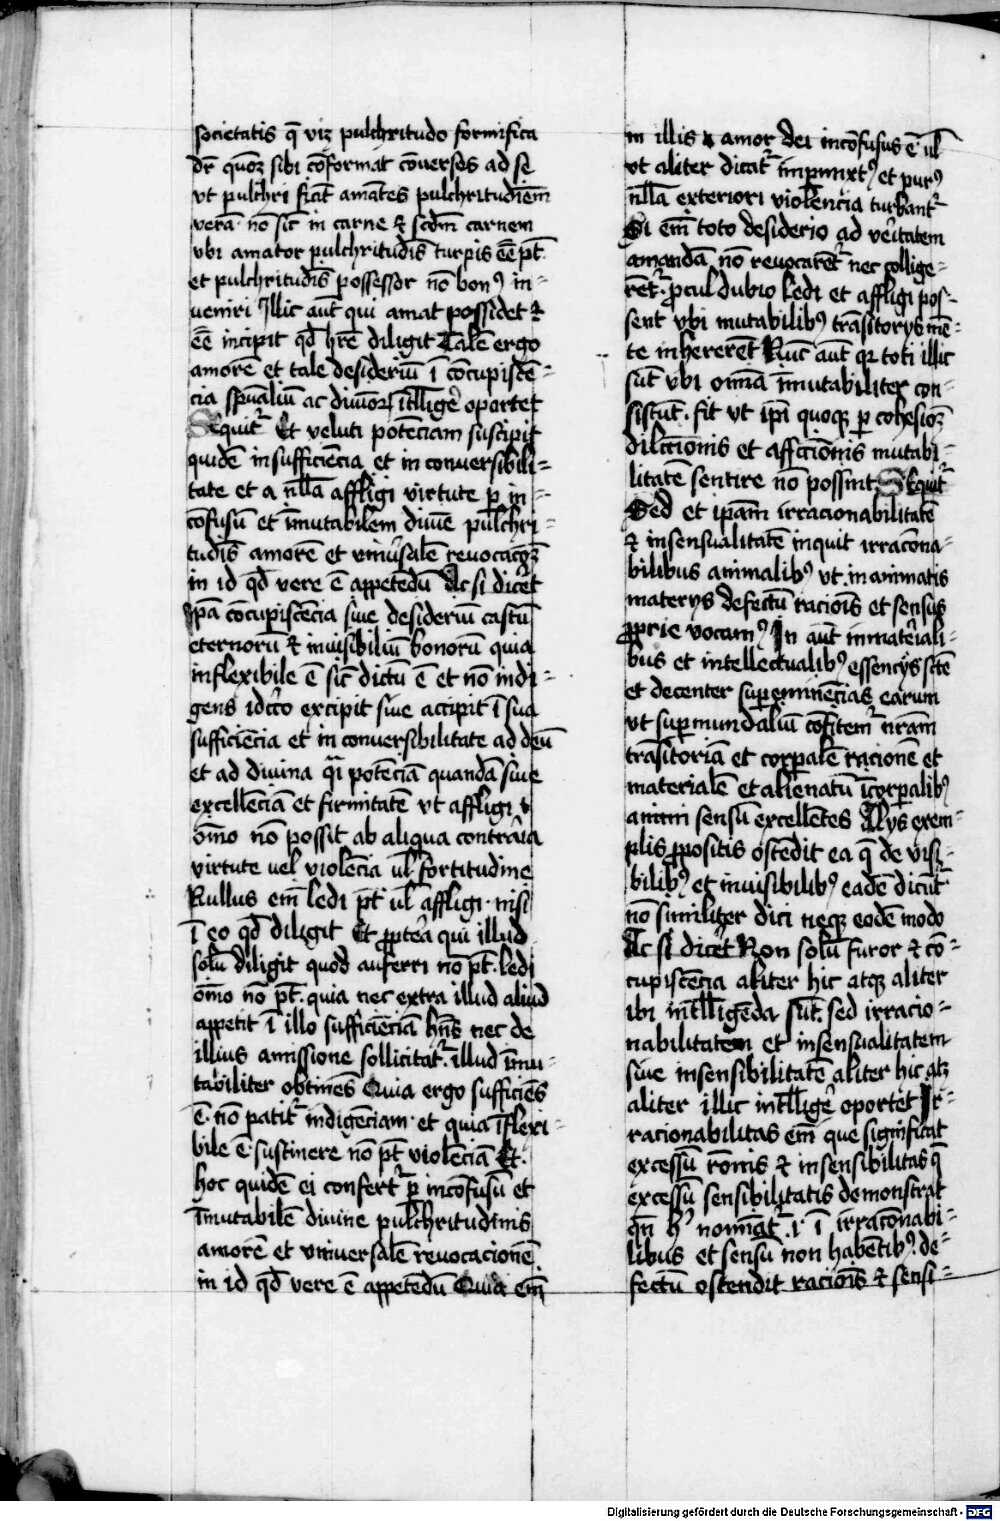 societatis q̄ viz pulchritudo formifica
dr̄ quoꝫ sibi cōformat cōuersos ad se
vt pulchri fiāt amātes pulchritudinē
verā nō sic̄ in carne ⁊ scd̄m carnem
vbi amator pulchritudīs turpis eē pt̄
et pulchritudīs possessor nō bonꝰ in-
ueniri Illic aūt qui amat possidet ⁊
eē incipit qd̄ hr̄e diligit Talē ergo
amorē et tale desideriū ī cōcupiscē-
cia spūaliū ac diuinoꝝ ītellige᷑ oportet
Sequit᷑ Et veluti potēciam suscipit
quidē insufficiēcia et in conuersibili-
tate et a nll̄a affligi virtute ꝑ in-
cōfusū et īmutabilem diuīe pulchri-
tudīs amorē et vniu᷑salē reuocacōꝫ
in id qd̄ vere ē appetēdū Ac si dice᷑t
Ipā cōcupiscēcia siue desideriū castū
eternorū ⁊ inuisibiliū bonorū quia
inflexibile ē sic̄ dictū ē et nō indi-
gens idc̄co excipit siue accipit ī sua
sufficiēcia et in conuersibilitate ad deū
et ad diuina q̄i potēciā quandā siue
excellēciā et firmitatē vt affligi
ōmo nō possit ab aliqua contrāia
virtute uel violēcia ul̄ fortitudine
Nullus em̄ ledi pt̄ ul̄ affligi nisi
ī eo qd̄ diligit Et ꝓpte᷑a qui illud
solū diligit quod auferri nō pt̄ ledi
ōmo nō pt̄ quia nec extra illud aliud
appetit ī illo sufficiēciā hn̄s nec de
illius amissione sollicitat᷑ illud īmu-
tabiliter obtinēs Quia ergo sufficiēs
ē nō patit᷑ indigēciam et quia īflexi-
bile ē sustinere nō pt̄ violēciā Et
hoc quidē ei confert᷑ ꝑ incōfusū et
īmutabilē diuine pulchritudinis
amorē et vniuersalē reuocacionē
in id qd̄ vere ē appetēdū Quia em̄
in illis amor dei incōfusus ē ul̄
vt aliter dicat᷑ īmpmixtꝰ et purꝰ
nll̄a exteriori violencia turbant᷑
Si em̄ toto desiderio ad ve᷑itatem
amandā nō reuocarēt᷑ nec collige-
rēt᷑ ꝓcul dubio ledi et affligi pos-
sent vbi mutabilibꝰ trāsitorys mē-
te inhererēt Nūc aūt qr toti illic
sūt vbi omīa īmutabiliter con-
sistūt fit vt ipī quoqꝫ ꝑ cohesioꝫ
dilcc̄ionis et affcc̄iōnis mutabi-
litatē sentire nō possint Sequit᷑
Sed et ipam̄ irracionabilitatē
⁊ insensualitatē inquit irracōna-
bilibus animalibꝰ vt inanimatis
materys defectū raciōis et sensus
ꝓprie vocamꝰ In aūt inmate᷑iali-
bus et intellectualibꝰ essencijs scē
et decenter sup̱eminēcias earum
vt sup̱mundaliū cōfitem᷑ nr̄am
trāsitoriā et corꝑalē racionē et
materialē et alienatū īcorꝑalibꝰ
animi sensū excellētes Alys exem-
plis ꝓpositis ostēdit ea q̄ de visi-
bilibꝰ et inuisibilibꝰ eadē dicūt᷑
nō similiter dici neqꝫ eodē modo
Ac si dice᷑t Non solū furor ⁊ cō-
cupiscēcia aliter hic atqꝫ aliter
ibi intell̄igēda sūt sed irracio-
nabilitatem et insensualitatem
siue insensibilitatē aliter hic atqꝫ
aliter illic intell̄ige᷑ oportet Ir-
racionabilitas em̄ que significat
excessū rōnis ⁊ insensibilitas q̄
excessū sensibilitatis demonstrat
qn̄ hꝰ nomīat᷑ .i. ī irracōnabi-
libus et sensū non habētibꝰ de-
fectū ostendit raciōis ⁊ sensi-
Digitalisierung gefördert durch die Deutsche Forschungsgemeinschaft - DFG